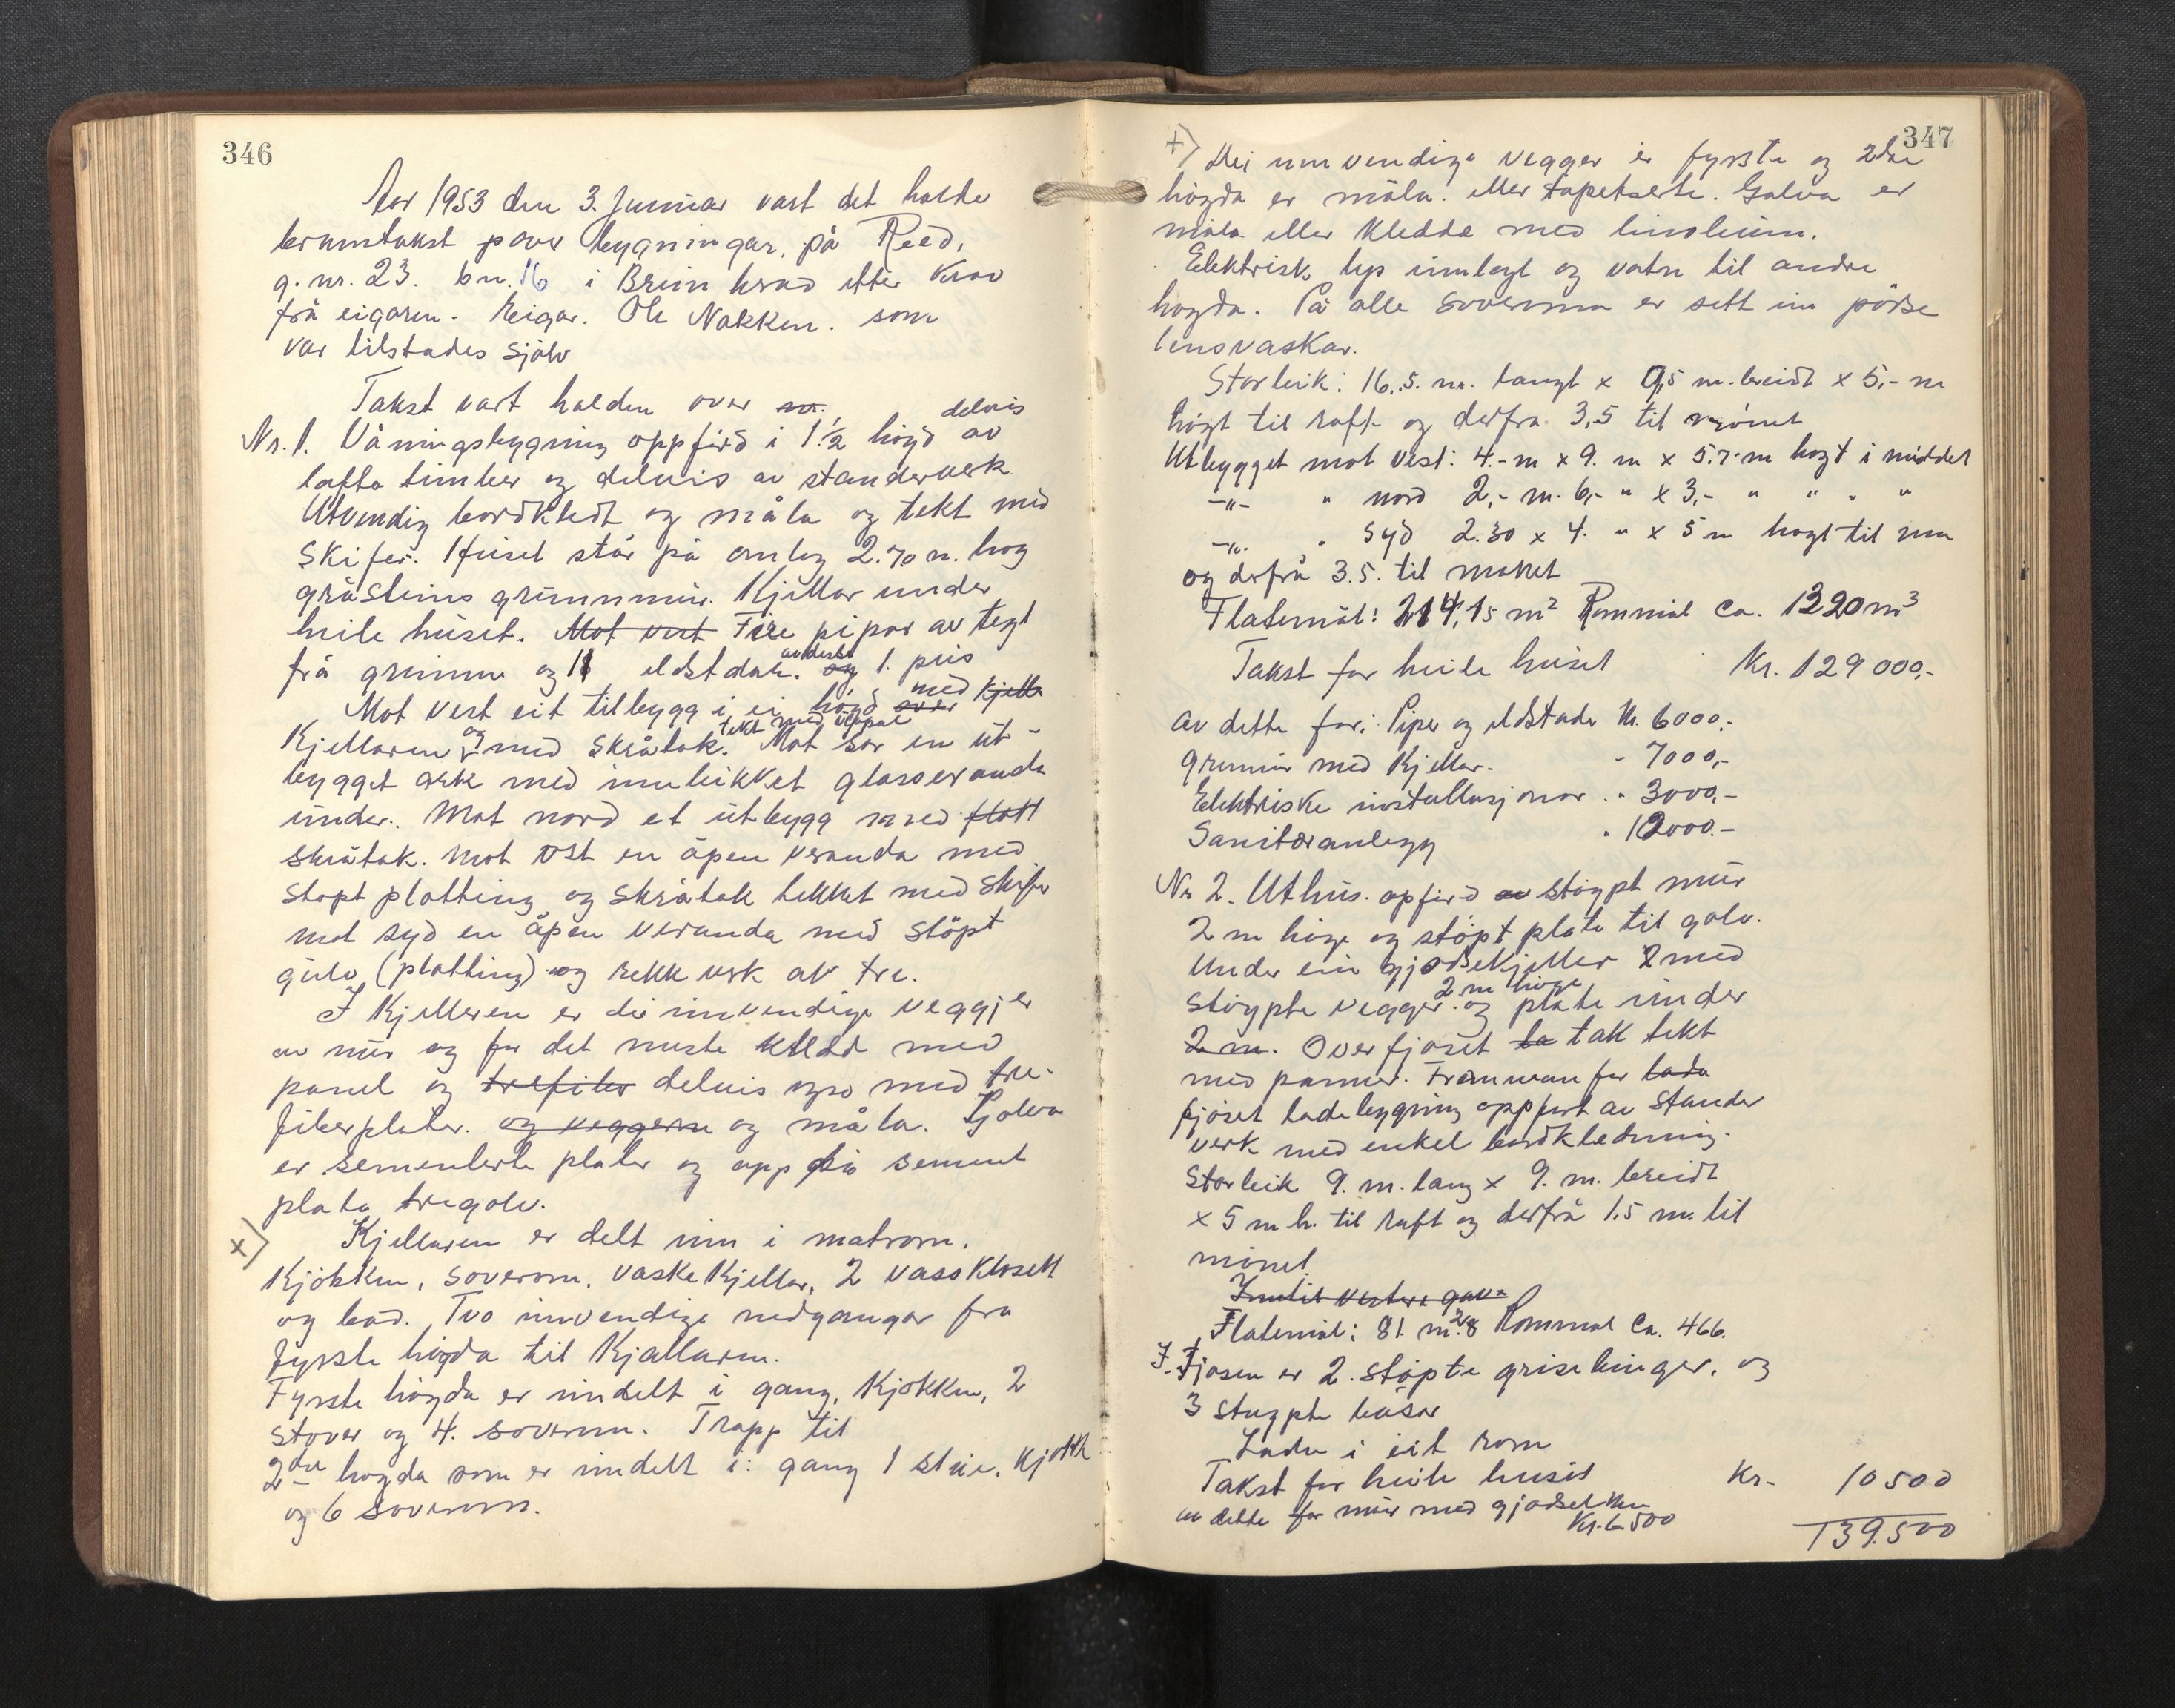 346
Aar 1953 den 3. Januar vart det halde
branntakst paver bygningar, på Reed,
g. nr. 23. bn. 16 i Breim herad etter krav
frå eigaren. Eigar. Ole Nakken. som
var tilstades sjølv
Takst vart halden over nr.
Nr. 1. Våningsbygning oppførd i 1.½ høgd delvis av
lafta timber og delvis av standerverk
Utvendig bordkledt og måla og tekt med
skifer. Huset står på omlag 2.70 m. høg
gråsteins grunnmur. Kjellar under
heile huset. Mot vest Fire pipor av tegl
frå grunnen og 11 eldstdar. av desse og 1. peis
Mot vest eit tilbygg i ei høgd over med kjella
Kjellaren og med skråtak. tekt med Mot sør en ut-
bygget ark med innbikket glassveranda
under. Mot nord et utbygg med flatt
skråtak. Mot øst en åpen veranda med
støpt platting og skråtak tekket med skifer
mot syd en åpen veranda med støpt
gulv (platting) og rekkverk av tre.
I Kjelleren er dei innvendige veggjer
av mur og for det meste kledd med
panel og trefiber delvis ogso med tre-
fiberplater. og veggerne og måla. Golva
er sementerte plater og opp på sement
plata tregolv.
x) Kjellaren er delt inn i matrom.
Kjøkken, soverom, vaskekjellar, 2 vassklosett
og bad. Tvo innvendige nedgangar fra
fyrste høgda til Kjellaren.
Fyrste høgda er inndelt i gang, Kjøkken, 2
stover og 4. soverom. Trapp til
2dre høgda som er inndelt i: gang 1 stue, kjøkk
og 6 soverom.
347
+) Dei innvendige vegger i fyrste og 2dre
høgda er måla. eller tapetserte. Golva er
måla eller kledde med linoleum.
Elektrisk lys innlagt og vatn til andre
høgda. På alle soveromma er sett inn pörse
lensvaskar.
Storleik: 16.5. m. langt x 9,5 m. breidt x 5,- m
høgt til raft og derfra 3,5 til mönet
Utbygget mot vest: 4.- m x 9. m x 5.7. m høgt i middel
-"- " nord 2,- m. 6,- " x 3,- " " " "
-"- " syd 2.30 x 4. " x 5 m høgt til
og derfrå 3.5. til mønet
Flatemål: 214,15 m² Rommål ca. 1320 m³
Takst for heile huset Kr. 129 000,-
av dette for: Piper og eldstader kr. 6000.-
Grunnmur med Kjellar. - 7000,-
Elektriske installasjonar. " 3000,-
Sanitæranlegg " 12000.-
Nr 2. Uthus. opførd av støypt mur
2 m høge og støypt plate til golv.
Under ein gjødsekjeller 2 med
støypte vegger 2 m høge og plate under
2 m. Over fjøset la tak tekt
med panner. Framman for lada
fjøset ladebygning oppført av stander
verk med enkel bordkledning.
Storleik 9. m. lang x 9. m. breidt
x 5 m h. til raft og derfrå 1.5 m. til
mønet.
Inntil vestre gav
Flatemål: 81. m² Rommål ca. 466.
I Fjosen er 2. støpte grisebinger. og
3 støypte båsar
Lada i eit rom
Takst for heile huset Kr- 10 500
av dette for mur med gjødsel
Kr. 6.500
139.500